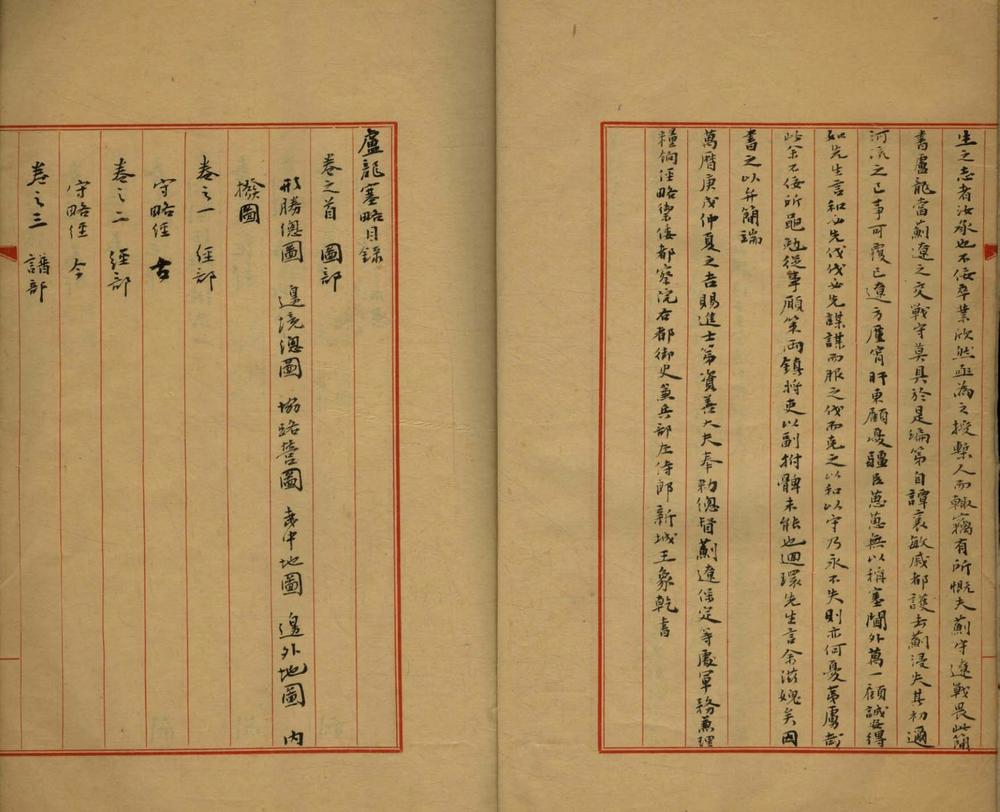 生之志者汝承也不佞卒業欣然亟為之授槧人而輒竊有所慨夫薊守遼戰畏此簡
書盧龍當薊遼之交戰守莫具於是編第自譚襄敏戚都護去薊浸失其初邇
河流之已事可覆已遼方廑宵旰東顧憂疆臣葸葸無以稱塞閫外萬一顧誠得
如先生言和必先伐伐必先謀謀而服之伐而克之以和以守乃永不失則亦何憂夷虜哉
此余不佞所黽勉從事願策兩鎮將吏以副拊髀未能也迴環先生言余滋媿矣因
書之以弁簡端
萬曆庚戌仲夏之吉賜進士第資善大夫奉勑總督薊遼保定等處軍務兼理
糧餉經略禦倭都察院右都御史兼兵部左侍郎新城王象乾書
盧龍塞略目錄
卷之首 圖部
形勝總圖 邊境總圖 協路營圖 表中地圖 邊外地圖 內
撥圖
卷之一 經部
守略經 古
卷之二 經部
守略經 今
卷之三 譜部